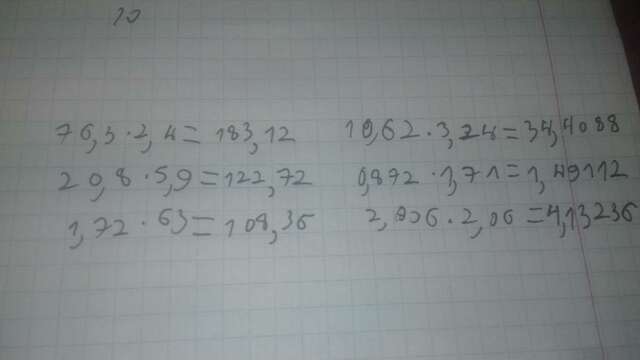 20
76,3·2,4=183,12 10,62·3,24=34,4088
20,8·5,9=122,72 0,872·1,71=1,49112
1,72·63=108,36 2,006·2,06=4,13236